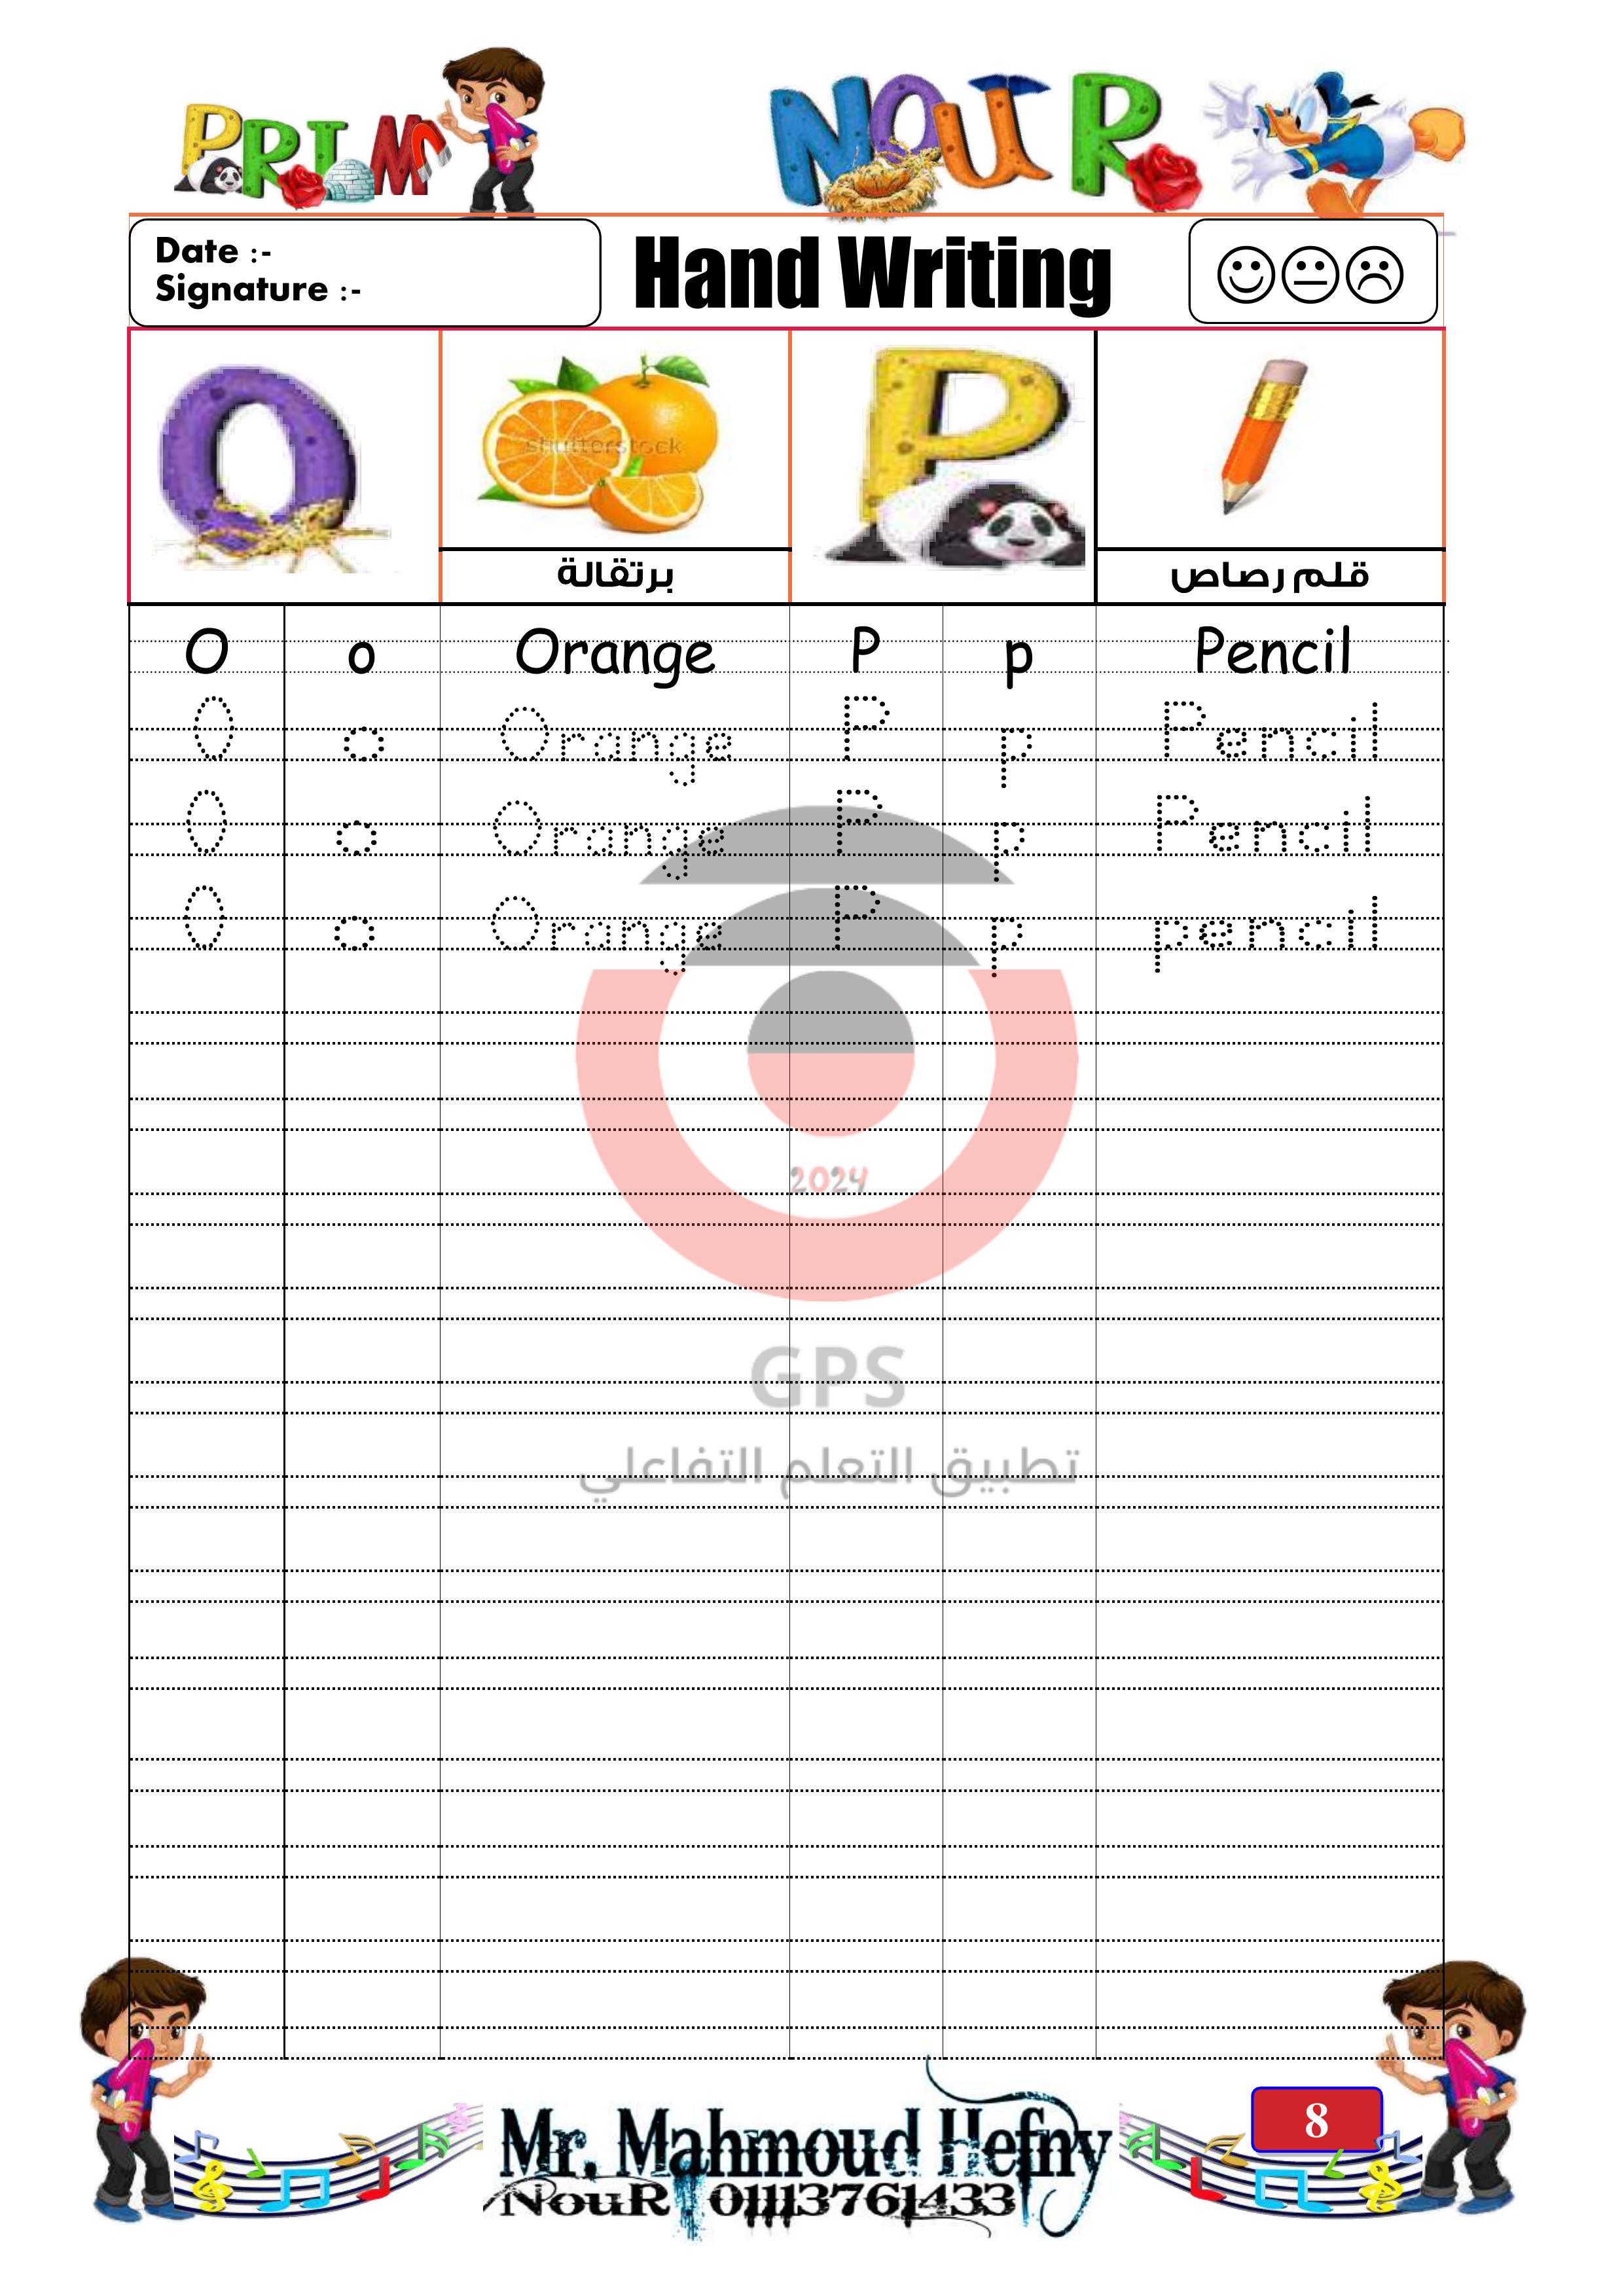 PRIM 1 NOUR
Date :-
Signature :-
Hand Writing
O
shutterstock
P
برتقالة
قلم رصاص
O o Orange P p Pencil
O o Orange P p Pencil
O o Orange P p Pencil
O o Orange P p pencil
2024
GPS
تطبيق التعلم التفاعلي
8
Mr. Mahmoud Hefny
NouR 01113761433